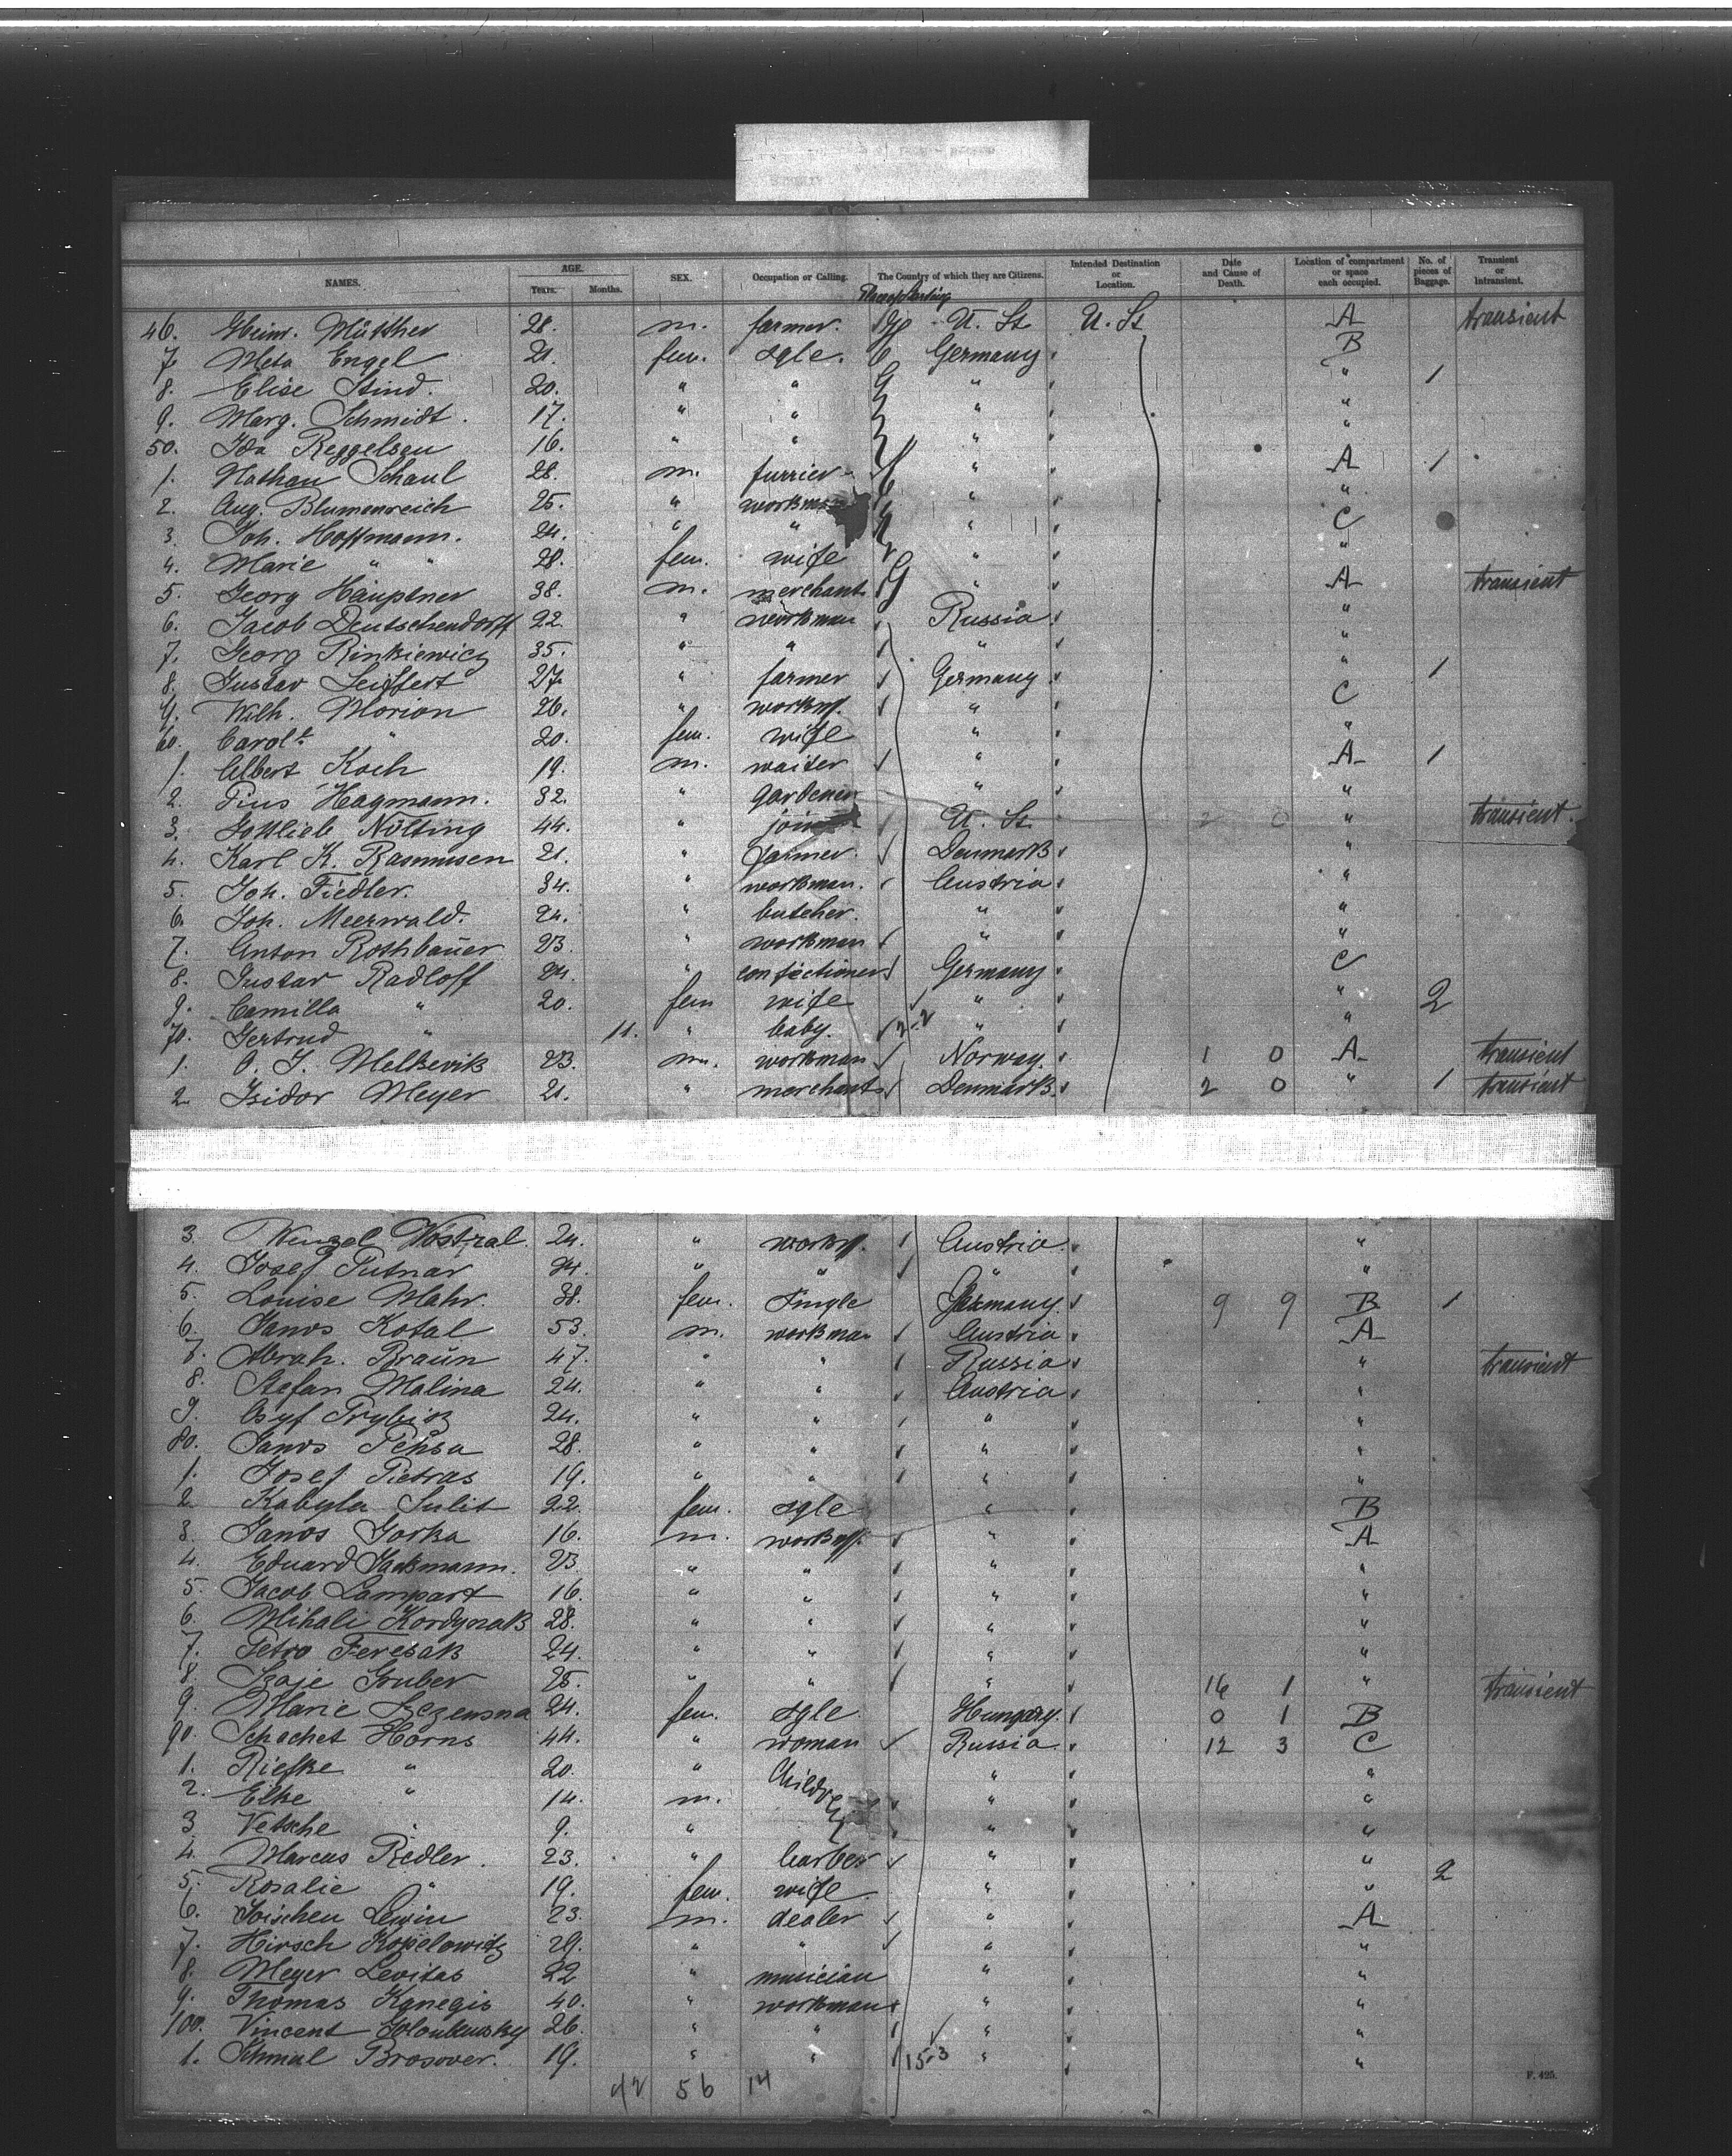 NAMES. AGE. Years. Months. SEX. Occupation or Calling. The Country of which they are Citizens. Intended Destination or Location. Date and Cause of Death. Location of compartment or space each occupied. No. of pieces of Baggage. Transient or Intransient.
46. Heinr. Mütther 28. m. farmer. U. St. U. St A transient
7. Meta Engel 21. fem. sgle. Germany B
8. Elise Stind. 20. " " " " 1
9. Marg. Schmidt. 17. " " " "
50. Ida Reggelsen 16. " " " "
1. Nathan Schaul 28. m. furrier " A 1
2. Aug. Blumenreich 25. " workman " "
3. Joh. Hoffmann. 24. " " " C
4. Marie " " 28. fem. wife " "
5. Georg Hauptner 38. m. merchant " A transient
6. Jacob Deutschendorff 22. " workman Russia "
7. Georg Rinkiewicz 35. " " " "
8. Gustav Seiffert 27. " farmer Germany " 1
9. Wilh. Morion 26. " workm. " C
60. Carol " 20. fem. wife " "
1. Albert Koch 19. m. waiter " A 1
2. Pius Hagmann. 32. " gardener " "
3. Gottlieb Nölting 44. " U. St. 2 0 " transient.
4. Karl K. Rasmusen 21. " farmer. Denmark "
5. Joh. Fiedler. 34. " workman. Austria "
6. Joh. Meerwald. 24. " butcher. " "
7. Anton Rothbauer 23. " workman " "
8. Gustav Radloff 24. " confectioner Germany C
9. Camilla " 20. fem wife " " 2
70. Gertrud " 11. " baby. " "
1. O. J. Melkevik 23. m. workman Norway. 1 0 A transient
2. Isidor Meyer 21. " merchant Denmark. 2 0 " 1 transient
3. Wenzel Wostral. 24. " workm. Austria "
4. Josef Putnar 24. " " " "
5. Louise Mahr. 38. fem. single Germany. 9 9 B 1
6. Janos Kotal 53. m. workman Austria A
7. Abrah. Braun 47. " " Russia " transient
8. Stefan Malina 24. " " Austria "
9. 24. " " " "
80. Janos 28. " " " "
1. Josef Pietras 19. " " " "
2. Kabyla Sulit 22. fem. sgle " B
3. Janos Gorka 16. m. workm. " A
4. Eduard 23. " " " "
5. Jacob Lampart 16. " " " "
6. Mihali Kordynak 28. " " " "
7. Petro Feresak 24. " " " "
8. Gruber 25. " " " 16 1 " transient
9. Marie 24. fem. sgle Hungary. 0 1 B
90. Schachet Horns 44. " woman Russia. 12 3 C
1. Riefke " 20. " Children " "
2. Elke " 14. m. " "
3 Vetsche " 9. " " "
4. Marcus Redler. 23. " barber " " 2
5. Rosalie " 19. fem. wife " "
6. Lewin 23. m. dealer " A
7. Hirsch Kopelowitz 29. " " " "
8. Meyer Levitas 22 " musician " "
9. Thomas Kanegis 40. " workman " "
100. Vincent 26. " " " "
1. Schmul Brosover. 19. " " 15-3 " "
42 56 14
F. 425.